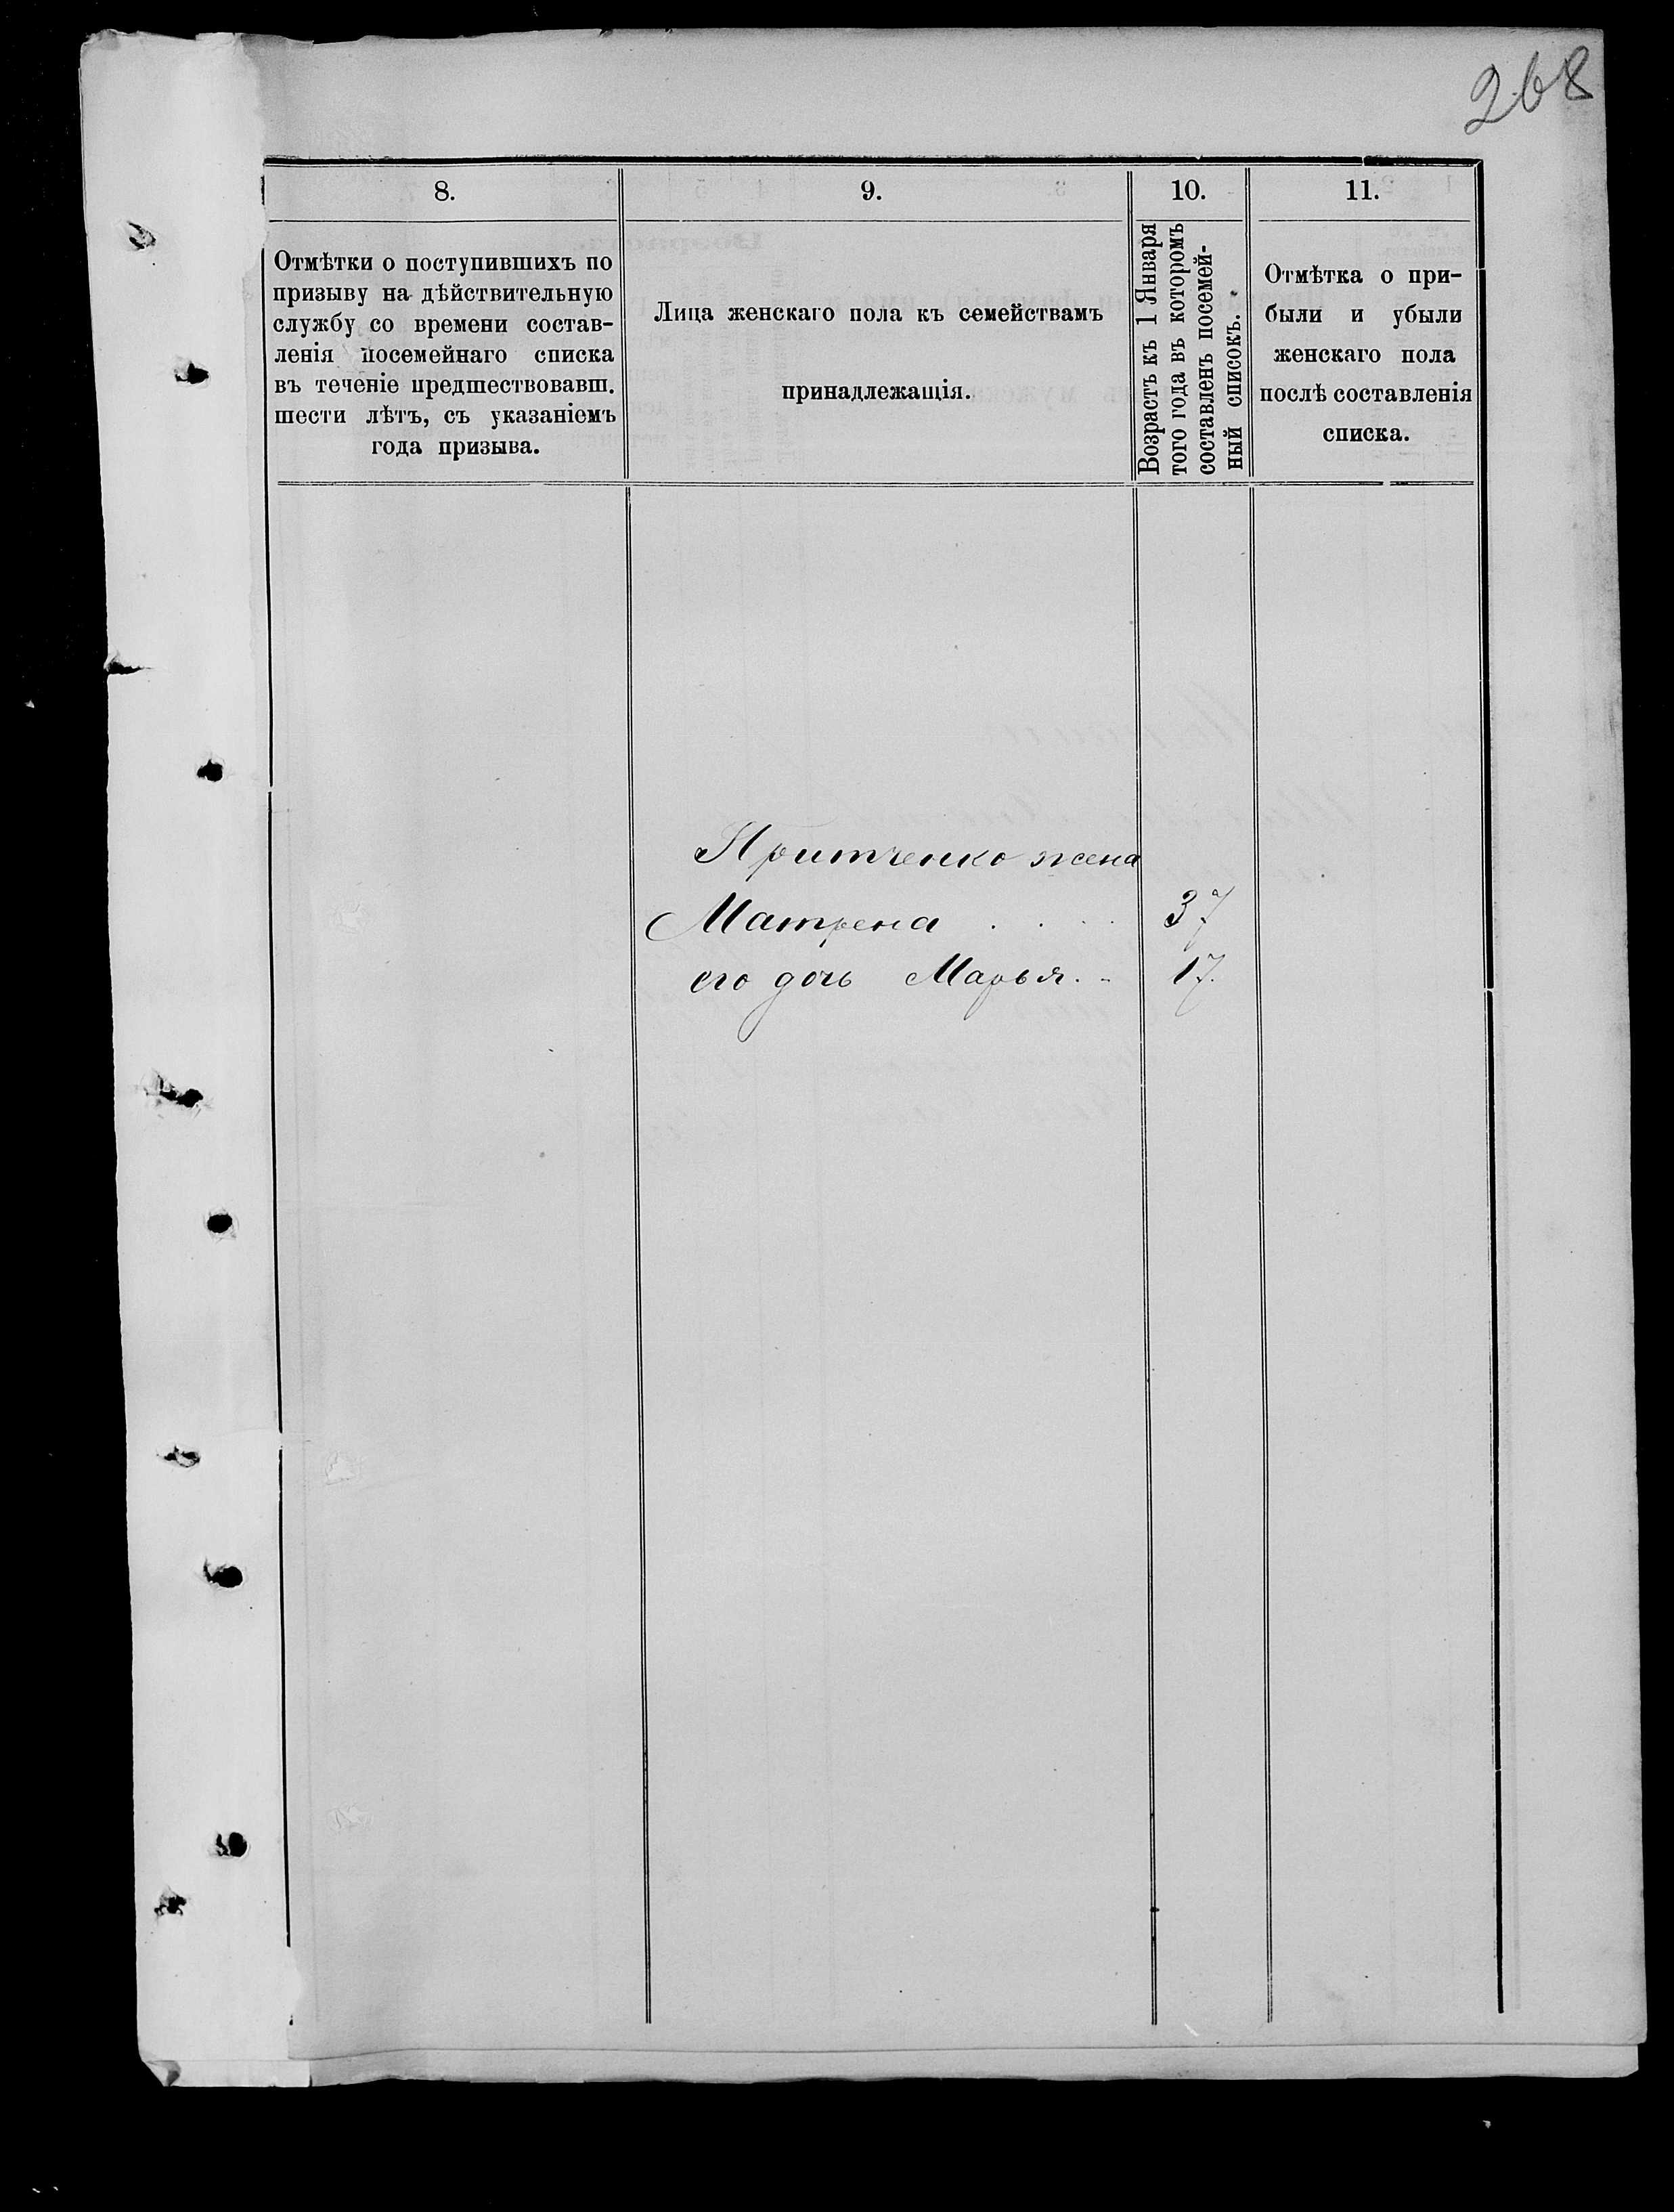 268
8.
9.
10.
11.
Отмѣтки о поступившихъ по
призыву на дѣйствительную
службу со времени состав-
ленія посемейнаго списка
въ теченіе предшествовавш.
шести лѣтъ, съ указаніемъ
года призыва.
Лица женскаго пола къ семействамъ
принадлежащія.
Возрастъ къ 1 Января
того года въ которомъ
составленъ посемей-
ный списокъ.
Отмѣтка о при-
были и убыли
женскаго пола
послѣ составленія
списка.
Притченко жена
Матрена . . . . 37
его дочь Марья. - 17.